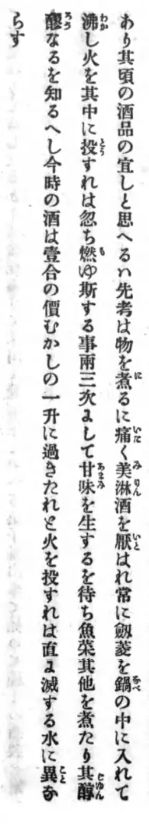 あり其頃の酒品の宜しと思へるハ先考は物を煮るに痛く美淋酒を厭はれ常に劔菱を鍋の中に入れて
沸し火を其中に投すれは忽ち燃ゆ斯する事兩三次よして甘味を生するを待ち魚菜其他を煮たり其醇
醪なるを知るへし今時の酒は壹合の價むかしの一升に過きたれと火を投すれは直よ滅する水に異な
らす